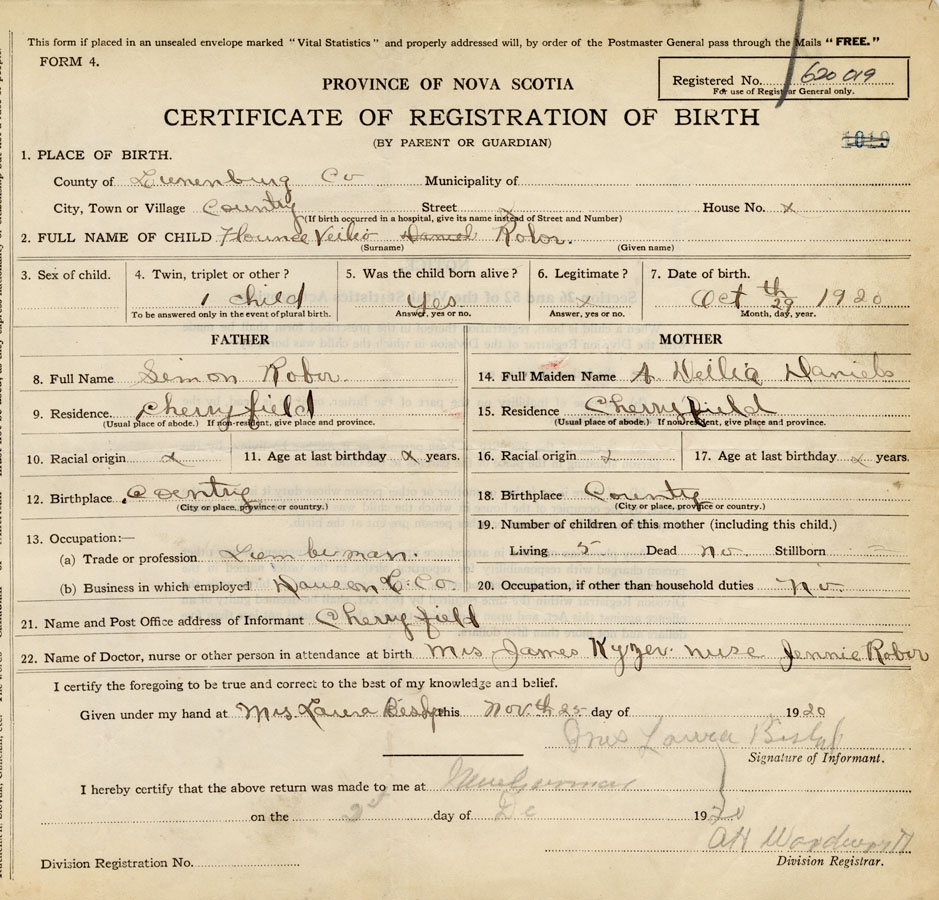 This form if placed in an unsealed envelope marked "Vital Statistics" and properly addressed will, by order of the Postmaster General pass through the Mails "FREE."
FORM 4.
Registered No. 620 019
For use of Registrar General only.
PROVINCE OF NOVA SCOTIA
CERTIFICATE OF REGISTRATION OF BIRTH
(BY PARENT OR GUARDIAN)
1019
1. PLACE OF BIRTH.
County of Lunenburg Co Municipality of
City, Town or Village Country Street House No. x
(If birth occurred in a hospital, give its name instead of Street and Number)
2. FULL NAME OF CHILD Rober.
(Surname) (Given name)
3. Sex of child. 4. Twin, triplet or other? 5. Was the child born alive? 6. Legitimate? 7. Date of birth.
1 child Yes x Oct 29th 1920
To be answered only in the event of plural birth. Answer, yes or no. Answer, yes or no. Month, day, year.
FATHER MOTHER
8. Full Name Simon Rober. 14. Full Maiden Name Daniels
9. Residence. Cherryfield 15. Residence Cherryfield
(Usual place of abode.) If non-resident, give place and province. (Usual place of abode.) If non-resident, give place and province.
10. Racial origin x 11. Age at last birthday x years. 16. Racial origin x 17. Age at last birthday x years.
12. Birthplace Coentry 18. Birthplace County
(City or place, province or country.) (City or place, province or country.)
19. Number of children of this mother (including this child.)
13. Occupation:—
(a) Trade or profession Lumberman. Living 5 Dead no Stillborn
(b) Business in which employed Co. 20. Occupation, if other than household duties No
21. Name and Post Office address of Informant Cherryfield
22. Name of Doctor, nurse or other person in attendance at birth Mrs James Kyzer nuse Jennie Rober
I certify the foregoing to be true and correct to the best of my knowledge and belief.
Given under my hand at Mrs. Laura this Nov. th 25 day of 1920
Mrs Laura
Signature of Informant.
I hereby certify that the above return was made to me at New Germany
on the 2nd day of De 1920
Division Registration No. Division Registrar.